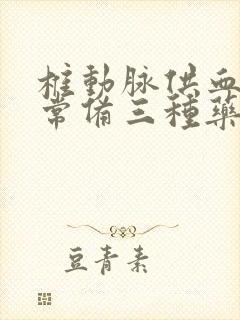 椎動脉供血
常備三種藥
豆青素